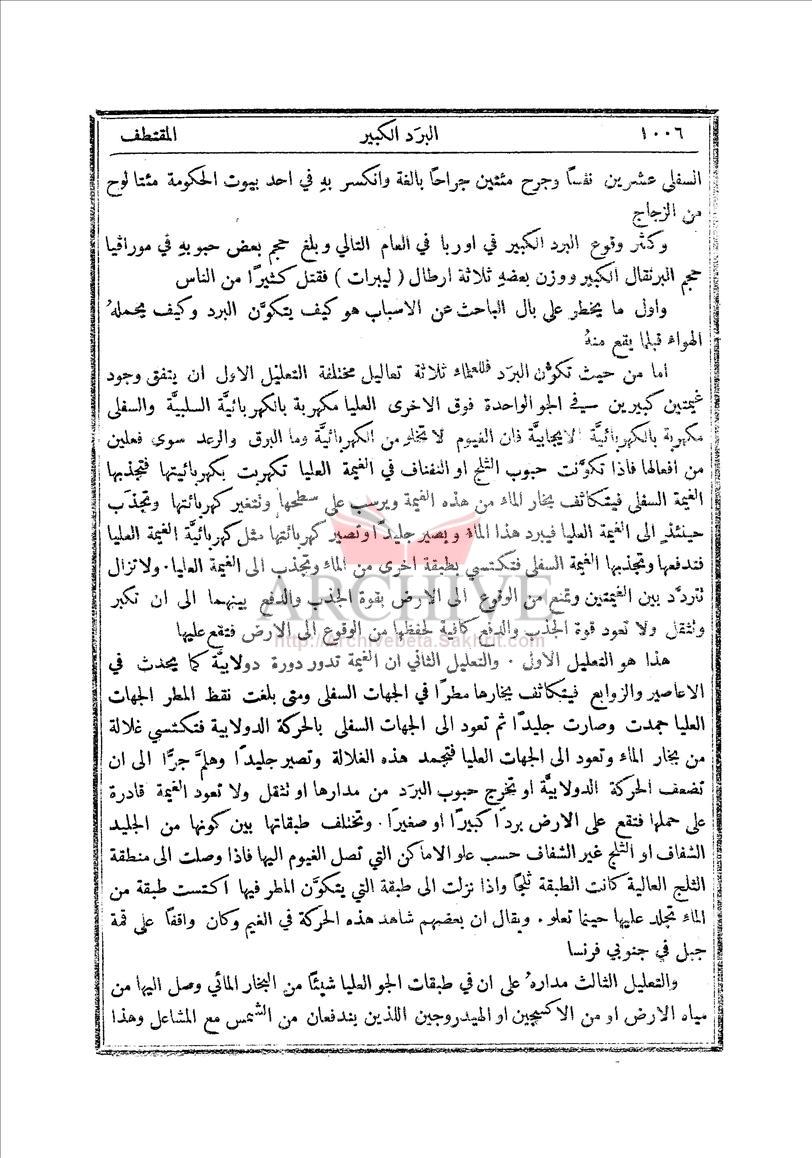 ١٠٠٦ البرَد الكبير المقتطف
السفلى عشرين نفسًا وجرح مئتين جراحًا بالغة وانكسر بهِ في احد بيوت الحكومة مئتا لوح
من الزجاج
وكثر وقوع البرد الكبير في اوربا في العام التالي وبلغ حجم بعض حبوبهِ في موراڤيا
حجم البرتقال الكبير ووزن بعضهِ ثلاثة ارطال ( ليبرات ) فقتل كثيرًا من الناس
واول ما يخطر على بال الباحث عن الاسباب هو كيف يتكوَّن البرد وكيف يحملهُ
الهواء قبلما يقع منهُ
اما من حيث تكوُّن البرَد فللعلماء ثلاثة تعاليل مختلفة التعليل الاول ان يتفق وجود
غيمتين كبيرين في الجو الواحدة فوق الاخرى العليا مكهربة بالكهربائيَّة السلبيَّة والسفلى
مكهربة بالكهربائيَّة الايجابيَّة فان الغيوم لا تخلو من الكهربائيَّة وما البرق والرعد سوى فعلين
من افعالها فاذا تكوَّنت حبوب الثلج او النفناف في الغيمة العليا تكهربت بكهربائيتها فتجذبها
الغيمة السفلى فيتكاثف بخار الماء من هذه الغيمة ويرسب على سطحها وتتغير كهربائتها وتجذَب
حينئذٍ الى الغيمة العليا فيبرد هذا الماء ويصير جليدًا وتصير كهربائتها مثل كهربائيَّة الغيمة العليا
فتدفعها وتجذبها الغيمة السفلى فتكتسي بطبقة اخرى من الماء وتجذب الى الغيمة العليا. ولا تزال
تتردَّد بين الغيمتين وتمنع من الوقوع الى الارض بقوة الجذب والدفع بينهما الى ان تكبر
وتثقل ولا تعود قوة الجذب والدفع كافية لحفظها من الوقوع الى الارض فتقع عليها
هذا هو التعليل الاول . والتعليل الثاني ان الغيمة تدور دورة دولابيَّة كما يحدث في
الاعاصير والزوابع فيتكاثف بخارها مطرًا في الجهات السفلى ومتى بلغت نقط المطر الجهات
العليا جمدت وصارت جليدًا ثم تعود الى الجهات السفلى بالحركة الدولابية فتكتسي غلالة
من بخار الماء وتعود الى الجهات العليا فتجمد هذه الغلالة وتصير جليدًا وهلمَّ جرًّا الى ان
تضعف الحركة الدولابيَّة او تخرج حبوب البرَد من مدارها او تثقل ولا تعود الغيمة قادرة
على حملها فتقع على الارض بردًا كبيرًا او صغيرًا . وتختلف طبقاتها بين كونها من الجليد
الشفاف او الثلج غير الشفاف حسب علو الاماكن التي تصل الغيوم اليها فاذا وصلت الى منطقة
الثلج العالية كانت الطبقة ثلجًا واذا نزلت الى طبقة التي يتكوَّن الماطر فيها اكتست طبقة من
الماء تجلد عليها حينما تعلو . ويقال ان بعضهم شاهد هذه الحركة في الغيم وكان واقفًا على قمة
جبل في جنوبي فرنسا
والتعليل الثالث مدارهُ على ان في طبقات الجو العليا شيئًا من البخار المائي وصل اليها من
مياه الارض او من الاكسجين او الهيدروجين اللذين يندفعان من الشمس مع المشاعل وهذا
ARCHIVE
http://Archivebeta.Sakhrit.com